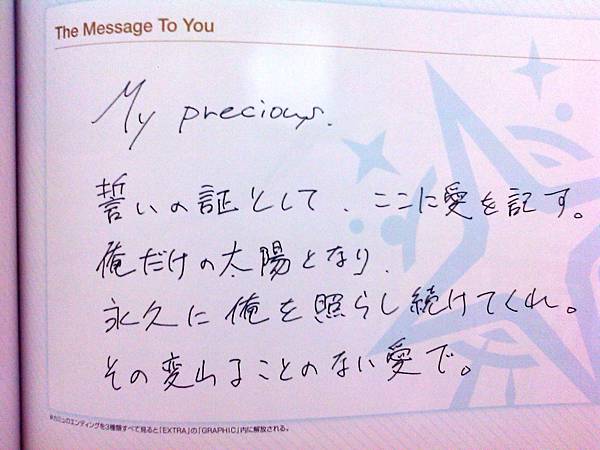 The Message To You
My precious.
誓いの証として、ここに愛を記す。
俺だけの太陽となり、
永久に俺を照らし続けてくれ。
その変わることのない愛で。
※カミュのエンディングを3種類すべて見ると「EXTRA」の「GRAPHIC」内に解放される。